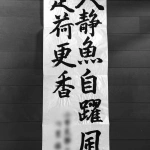 人静魚自躍風
定荷更香